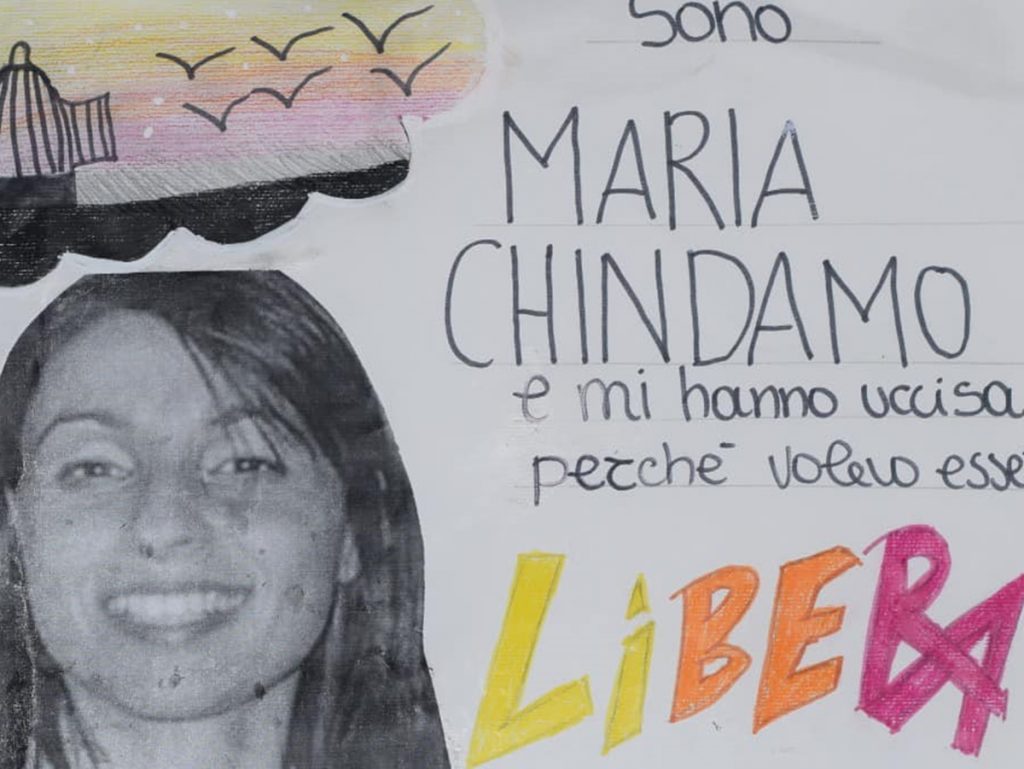 Sono
MARIA
CHINDAMO
e mi hanno uccisa
perché volevo esse
LiBERA